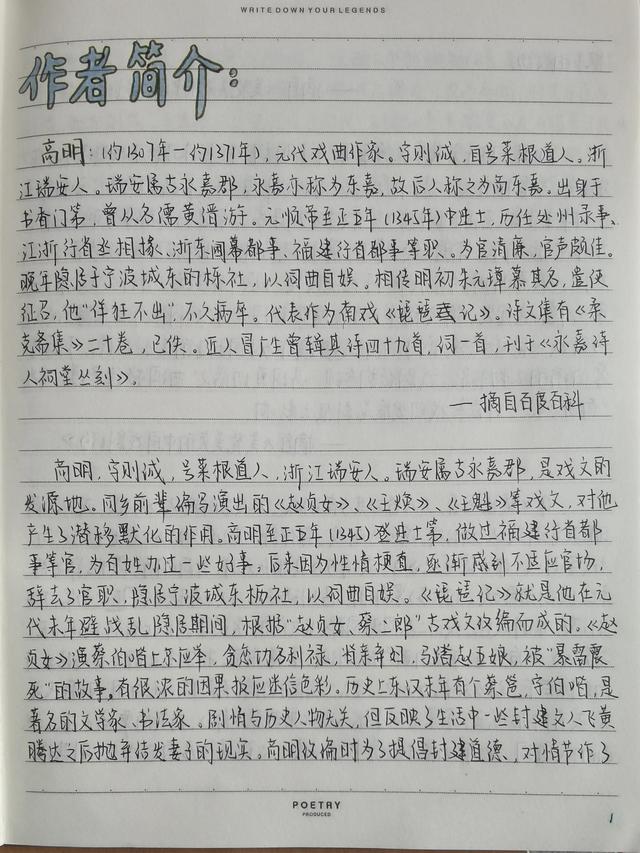 WRITE DOWN YOUR LEGENDS
作者简介:
高明:(约1307年—约1371年),元代戏曲作家。字则诚,自号菜根道人。浙
江瑞安人。瑞安属古永嘉郡,永嘉亦称为东嘉,故后人称之为高东嘉。出身于
书香门第,曾从名儒黄溍游。元顺帝至正五年(1345年)中进士,历任处州录事、
江浙行省丞相掾、浙东阃幕都事、福建行省都事等职、。为官清廉,官声颇佳。
晚年隐居于宁波城东的栎社,以词曲自娱。相传明初朱元璋慕其名,遣使
征召,他"佯狂不出",不久病卒。代表作为南戏《琵琶记》。诗文集有《柔
克斋集》二十卷,已佚。近人冒广生曾辑其诗四十九首,词一首,刊于《永嘉诗
人祠堂丛刻》。
— 摘自百度百科
高明,字则诚,号菜根道人,浙江瑞安人。瑞安属古永嘉郡,是戏文的
发源地。同乡前辈编写演出的《赵贞女》、《王焕》、《王魁》等戏文,对他
产生了潜移默化的作用。高明至正五年(1345)登进士第,做过福建行省都
事等官,为百姓办过一些好事;后来因为性情梗直,逐渐感到不适应官场,
辞去了官职,隐居宁波城东栎社,以词曲自娱。《琵琶记》就是他在元
代末年避战乱隐居期间,根据"赵贞女、蔡二郎"古戏文改编而成的。《赵
贞女》演蔡伯喈上京应举,贪恋功名利禄,背亲弃妇,马踏赵五娘,被"暴雷震
死"的故事,有很浓的因果报应迷信色彩。历史上东汉末年有个蔡邕,字伯喈,是
著名的文学家、书法家。剧情与历史人物无关,但反映了生活中一些封建文人飞黄
腾达之后抛弃结发妻子的现实。高明改编时为了提倡封建道德、对情节作了
POETRY
PRODUCED
1